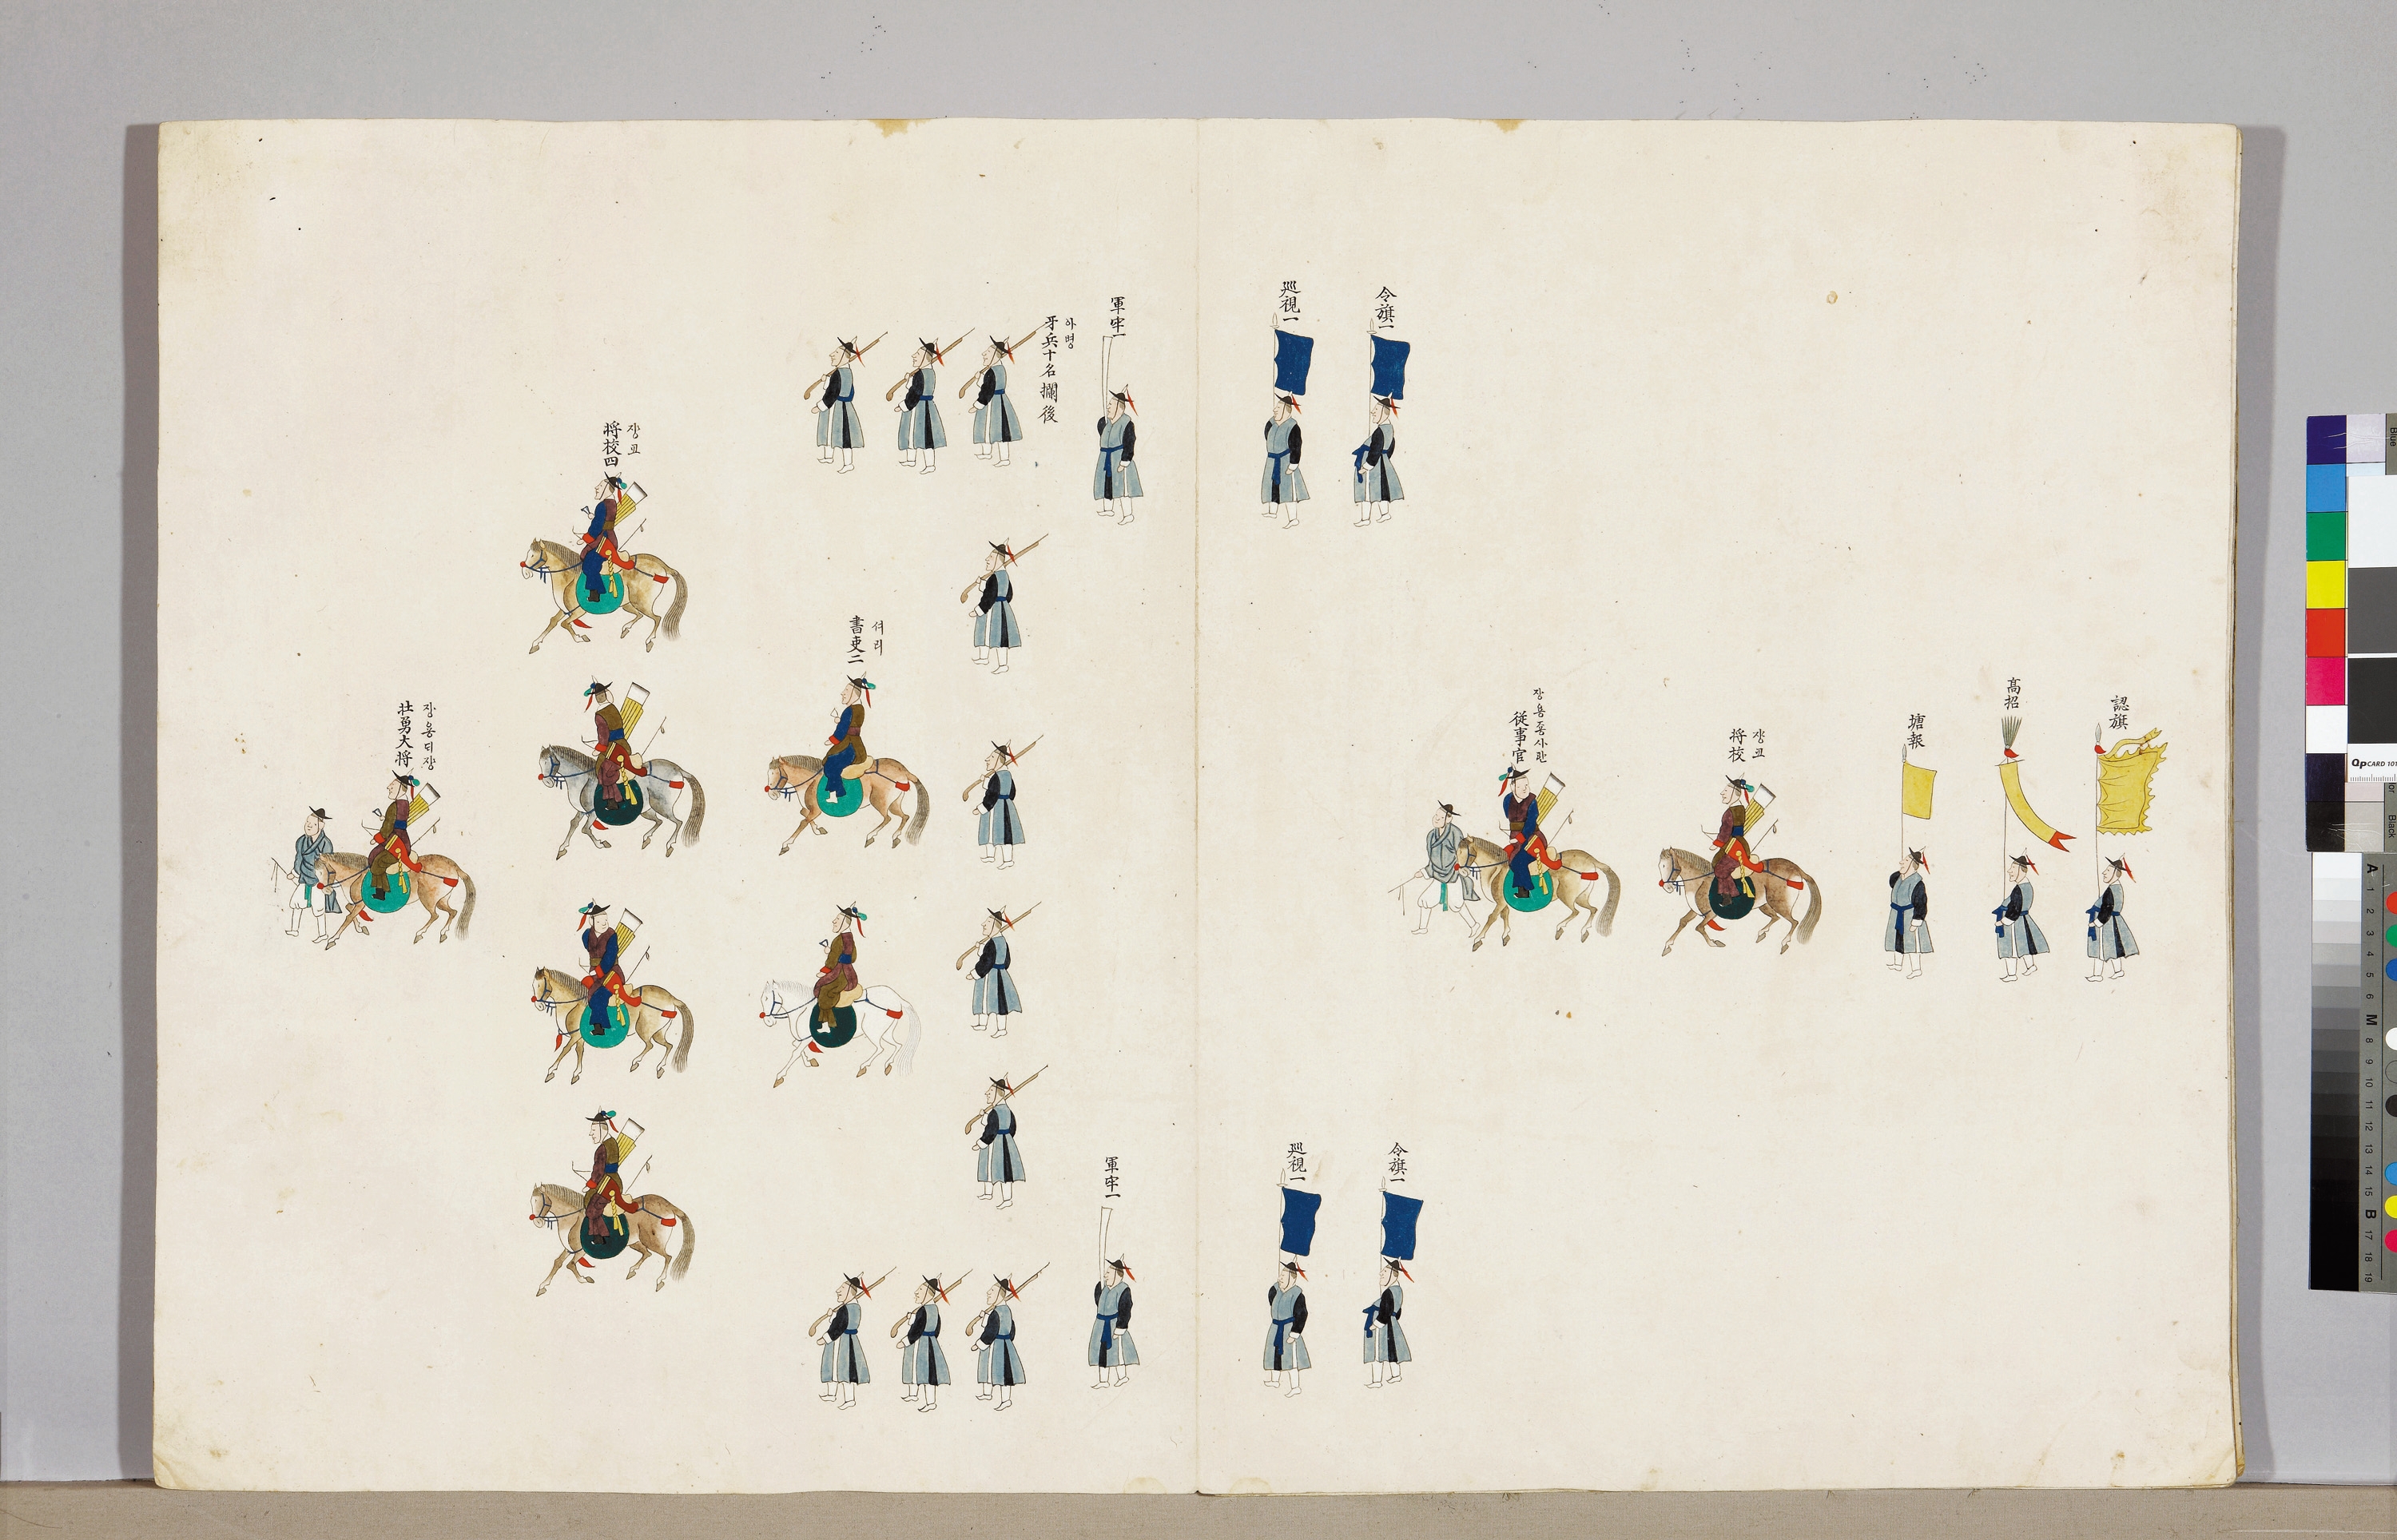 認旗
高招
塘報
쟝교
将校
장용죵사관
從事官
令旗一
巡視一
令旗一
巡視一
軍牢一
軍牢一
아병
牙兵十名攔後
셔리
書吏二
쟝교
将校四
장용대쟝
壮勇大将
QpCARD 101
Blue
Black
A 1 2 3 4 5 6 M 8 9 10 11 12 13 14 15 B 17 18 19